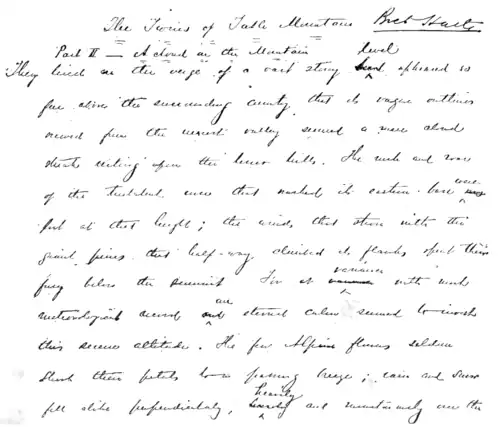 The Twins of Table Mountain Bret Harte
Part I — A cloud on the Mountain
They lived on the verge of a vast stony level upheaved so
far above the surrounding country that its vague outlines
viewed from the nearest valley seemed a mere cloud
streak resting upon the lesser hills. The rush and roar
of the turbulent river that washed its eastern base were
lost at that height; the winds that strove with the
giant pines that half-way climbed its flanks spent their
fury below the summit For at variance with most
meteorological record an eternal calm seemed to invest
this serene altitude. The few Alpine flowers seldom
their petals to a passing breeze; rain and snow
fell alike perpendicularly, heavily and monotonously over the